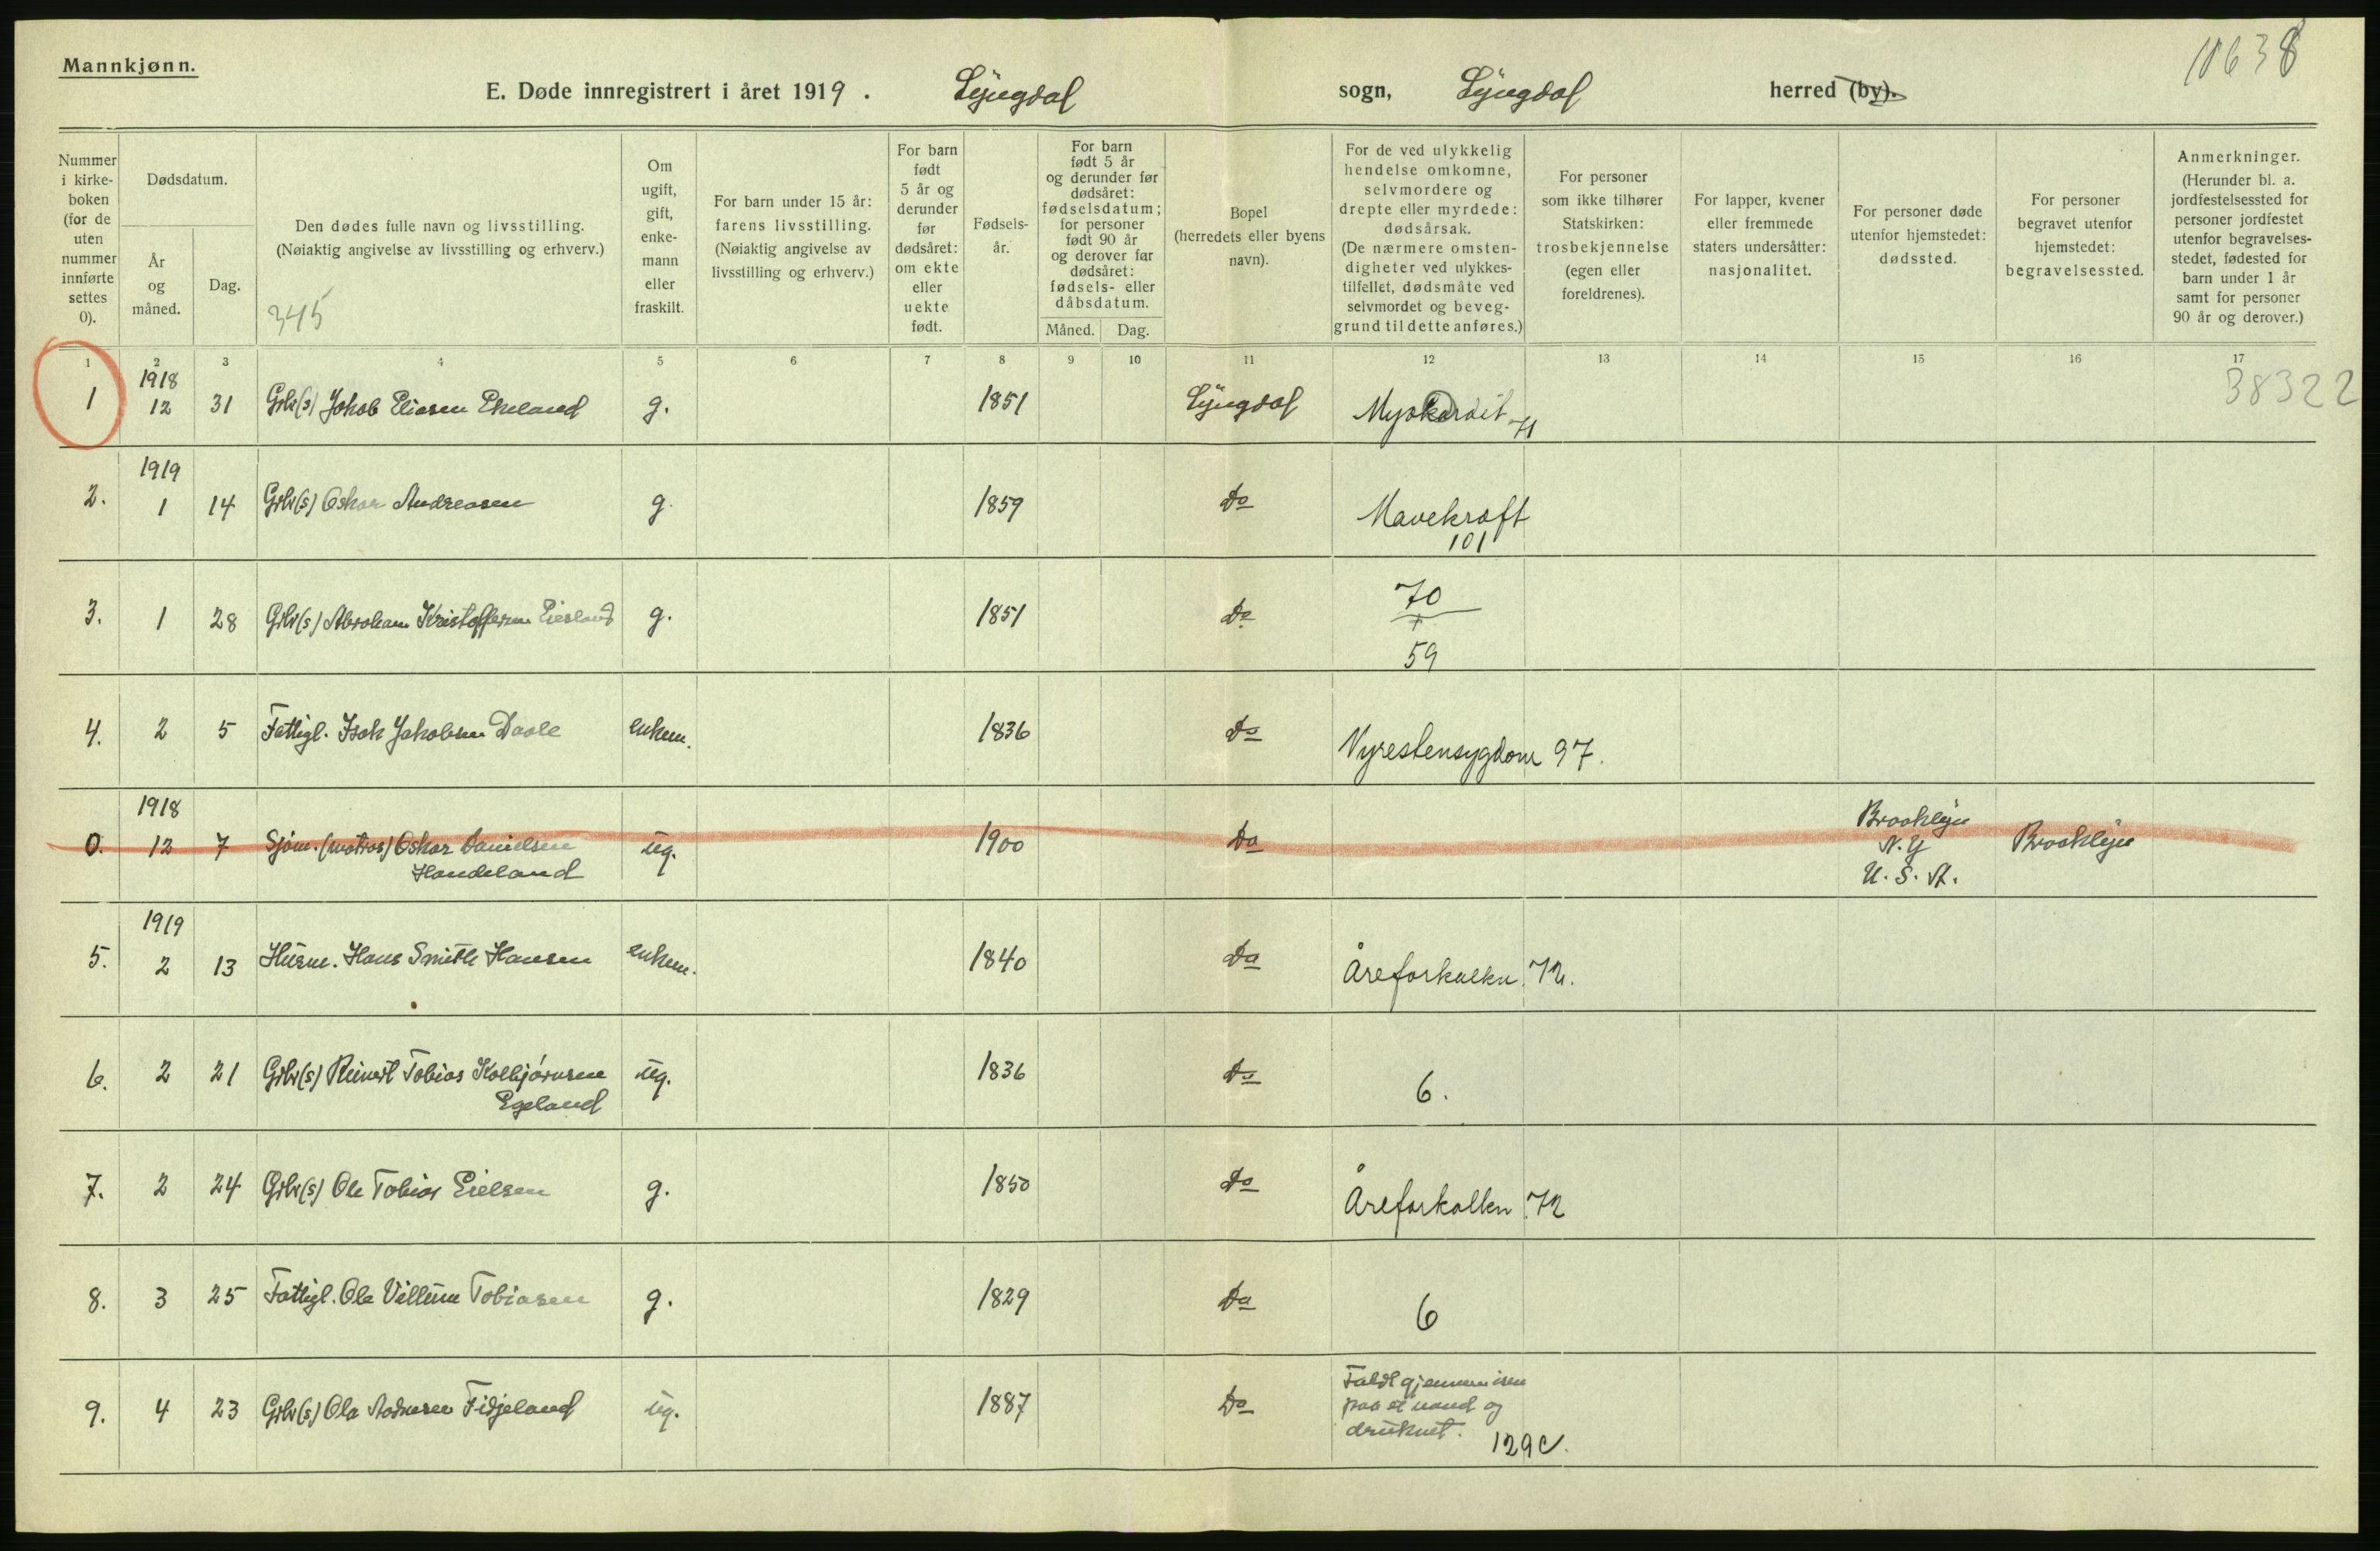 Mannkjønn.
10638
E. Døde innregistrert i året 1919. Lyngdal sogn, Lyngdal herred (by).
Nummer i kirke-boken (for de uten nummer innførte settes 0).
Dødsdatum.
År og måned.
Dag.
Den dødes fulle navn og livsstilling.
(Nøiaktig angivelse av livsstilling og erhverv.)
345
Om ugift, gift, enke-mann eller fraskilt.
For barn under 15 år: farens livsstilling. (Nøiaktig angivelse av livsstilling og erhverv.)
For barn født 5 år og derunder før dødsåret: om ekte eller uekte født.
Fødsels-år.
For barn født 5 år og derunder før dødsåret: fødselsdatum; for personer født 90 år og derover før dødsåret: fødsels- eller dåbsdatum.
Måned. Dag.
Bopel (herredets eller byens navn).
For de ved ulykkelig hendelse omkomne, selvmordere og drepte eller myrdede: dødsårsak. (De nærmere omsten-digheter ved ulykkes-tilfellet, dødsmåte ved selvmordet og beveg-grund til dette anføres.)
For personer som ikke tilhører Statskirken: trosbekjennelse (egen eller foreldrenes).
For lapper, kvener eller fremmede staters undersåtter: nasjonalitet.
For personer døde utenfor hjemstedet: dødssted.
For personer begravet utenfor hjemstedet: begravelsessted.
Anmerkninger. (Herunder bl. a. jordfestelsessted for personer jordfestet utenfor begravelses-stedet, fødested for barn under 1 år samt for personer 90 år og derover.)
1 2 3 4 5 6 7 8 9 10 11 12 13 14 15 16 17
1918
1 12 31 Grbr(s) Jakob Eliasen Ekeland g. 1851 Lyngdal Myokardit 71 38322
1919
2. 1 14 Grbr(s) Oskar Andreasen g. 1859 Do Mavekræft
101
3. 1 28 Grbr(s) Abraham Kristoffersen Eiesland g. 1851 Do 70
+
59
4. 2 5 Fattigl. Isak Jakobsen Daale enkem. 1836 Do Nyrestensygdom 97.
1918
0. 12 7 Sjøm. (matros) Oskar Danielsen ug. 1900 Do Brooklyn Brooklyn
Handeland N.Y
U.S.A.
1919
5. 2 13 Husm. Hans Smith Hansen enkem. 1840 Do Åreforkalkn. 72.
6. 2 21 Grbr(s) Reinert Tobias Kolbjørnsen ug. 1836 Do 6.
Egeland
7. 2 24 Grbr(s) Ole Tobias Eielsen g. 1850 Do Åreforkalkn. 72
8. 3 25 Fattigl. Ole Villum Tobiasen g. 1829 Do 6
9. 4 23 Grbr(s) Ola Andersen Fidjeland ug. 1887 Do Faldt gjennem isen
paa et vand og
druknet.
129c.